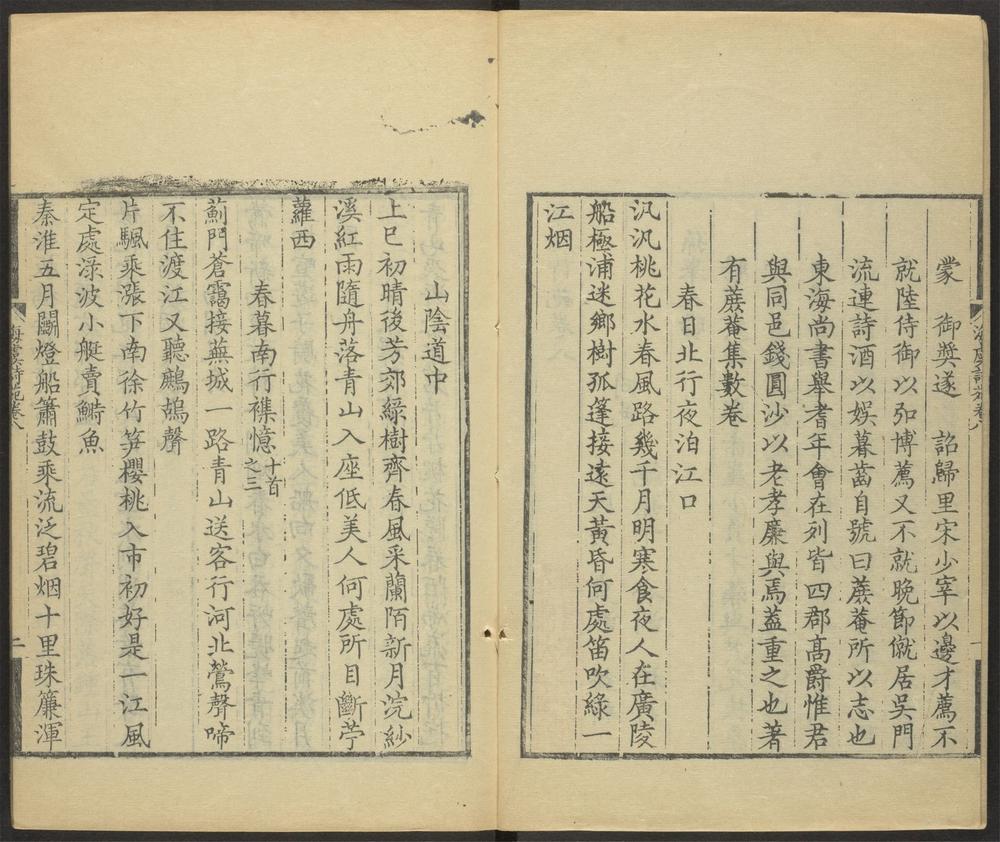 蒙　御奬遂　詔歸里宋少宰以邊才薦不
就陸侍御以弘博薦又不就晚節僦居吳門
流連詩酒以娛暮齒自號曰蔗菴所以志也
東海尚書舉耆年會在列皆四郡髙爵惟君
與同邑錢圓沙以老孝廉與焉蓋重之也著
有蔗菴集數卷
春日北行夜泊江口
汎汎桃花水春風路幾千月明寒食夜人在廣陵
船極浦迷鄉樹孤篷接遠天黃昏何處笛吹綠一
江烟
山陰道中
上巳初晴後芳郊綠樹齊春風采蘭陌新月浣紗
溪紅雨隨舟落青山入座低美人何處所目斷苧
蘿西
春暮南行襍憶十首之三
薊門蒼靄接蕪城一路青山送客行河北鶯聲啼
不住渡江又聽鷓鴣聲
片颿乘漲下南徐竹笋櫻桃入市初好是一江風
定處淥波小艇賣鰣魚
秦淮五月鬭燈船簫鼓乘流泛碧烟十里珠簾渾
海虞詩苑卷八
二